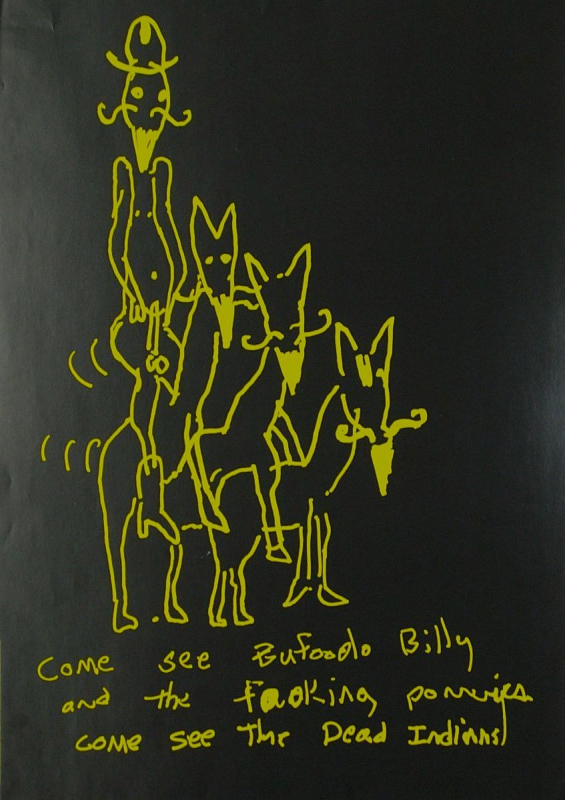 Come see Bufoodo Billy
and the facking ponnies
come see The Dead Indians